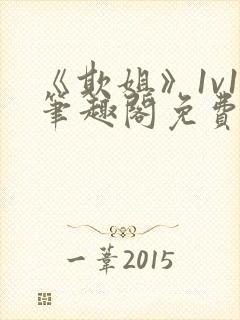 《欺姐》1v1
笔趣阁免费
一苇2015